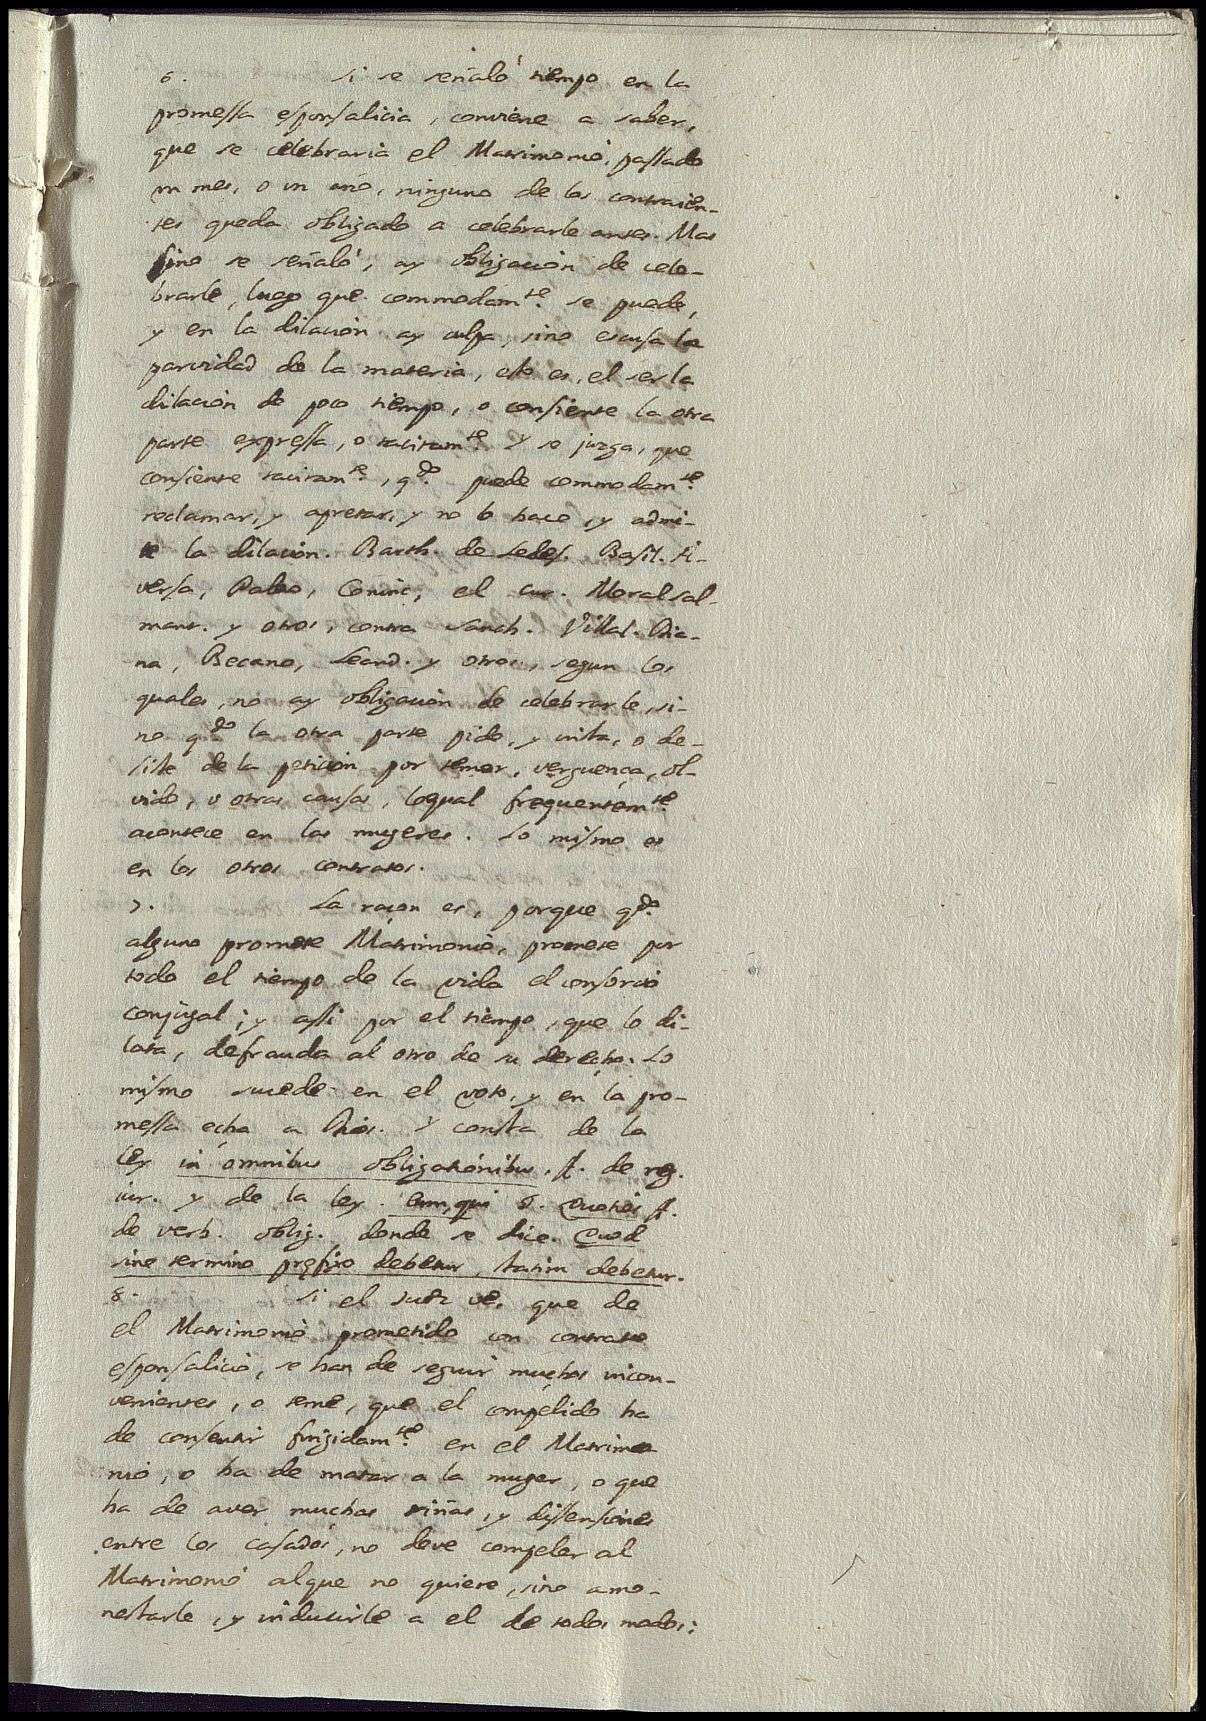 6. si se señaló tiempo en la
promessa esponsalicia, conviene a saber,
que se celebraria el Matrimonio, passado
vn mes, o vn año, ninguno de los contraien-
tes queda obligado a celebrarle antes. Mas
sino se señaló, ay obligacion de cele-
brarle, luego que commodam.te se puede,
y en la dilacion ay culpa, sino escusa la
parvidad de la materia, esto es, el ser la
dilacion de poco tiempo, o consiente la otra
parte expressa, o tacitam.te Y se juzga, que
consiente tacitam.te, q.do puede commodam.te
reclamar, y apretar, y no lo hace, y admi-
te la dilacion. Barth. de Ledes. Basil. A-
versa, Palao, Coninc, el Cur. Moral Sal-
mant. y otros, contra Sanch. Villal. Dia-
na, Becano, Leand. y otros, segun los
quales, no ay obligacion de celebrarle, si-
no q.do la otra parte pide, y insta, o de-
siste de la peticion por temor, verguença, ol-
vido, v otras causas, loqual frequentem.te
acontece en las mugeres. Lo mismo es
en los otros contratos.
7. La raçon es, porque q.do
alguno promete Matrimonio, promete por
todo el tiempo de la vida el consorcio
conjugal; y assi por el tiempo, que lo di-
lata, defrauda al otro de su derecho. Lo
mismo sucede en el voto, y en la pro-
messa echa a Dios. Y consta de la
ley in omnibus obligationibus. ff. de reg.
iur. y de la ley. Eum, qui §. Quoties ff.
de verb. oblig. donde se dice. Quod
sine termino prefixo debetur, statim debetur.
8. Si el Juez ve, que de
el Matrimonio prometido con contrato
esponsalicio, se han de seguir muchos incon-
venientes, o teme, que el compelido ha
de consentir fingidam.te en el Matrimo
nio, o ha de matar a la muger, o que
ha de aver muchas riñas, y dissensiones
entre los casados, no deve compeler al
Matrimonio alque no quiere, sino amo-
nestarle, y inducirle a el de todos modos: